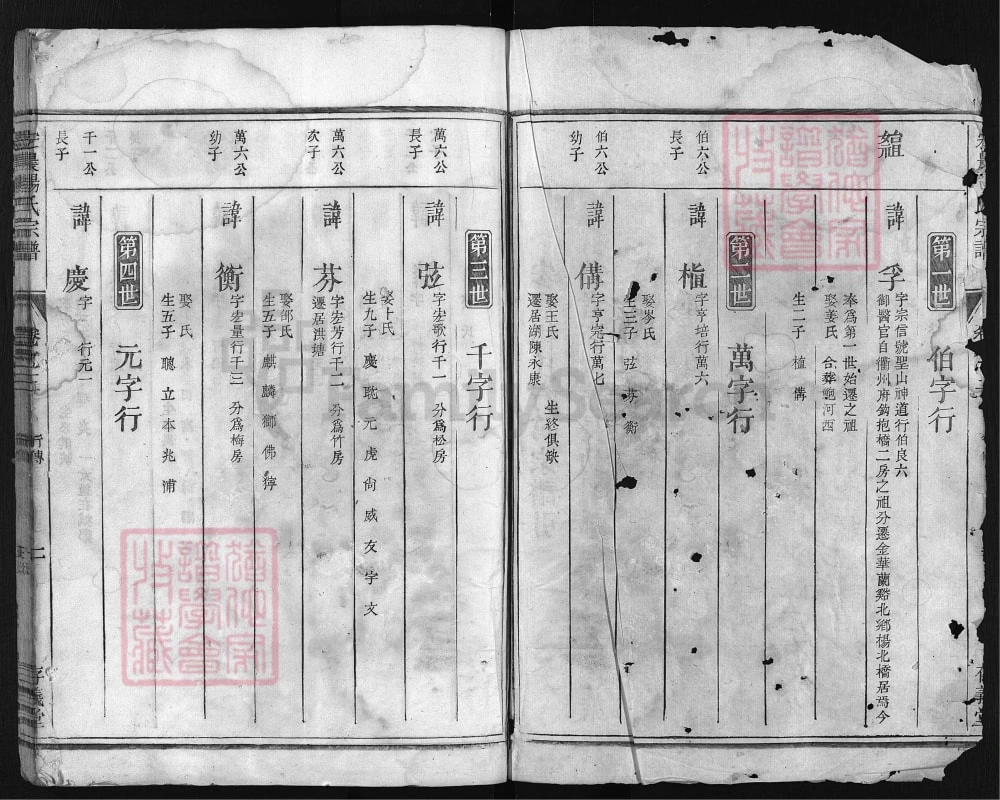 第一世
伯字行
諱
孚
字宗信號聖山神道行伯良六
御醫官自衢州府鈎抱橋二房之祖分遷金華蘭谿北鄉楊北橋居焉今
奉為第一世始遷之祖
娶姜氏 合葬鮑河西
生二子 植 備
第二世
萬字行
伯六公
長子
諱
植
字亨培行萬六
娶岑氏
生三子 弦 芬 衡
伯六公
幼子
諱
字亨完行萬七
娶王氏 生終俱缺
遷居湖陳永康
第三世
千字行
萬六公
長子
諱
弦
字宏歌行千一 分為松房
娶卜氏
生九子 慶 耽 元 虎 尙 威 友 字 文
萬六公
次子
諱
芬
字宏芳行千二 分為竹房
遷居洪塘
萬六公
幼子
諱
衡
字宏量行千三 分為梅房
娶邵氏
生五子 麒 麟 獅 佛 獰
娶 氏
生五子 聰 立 本 兆 浦
第四世
元字行
千一公
長子
諱
慶
行元一
楊氏宗譜